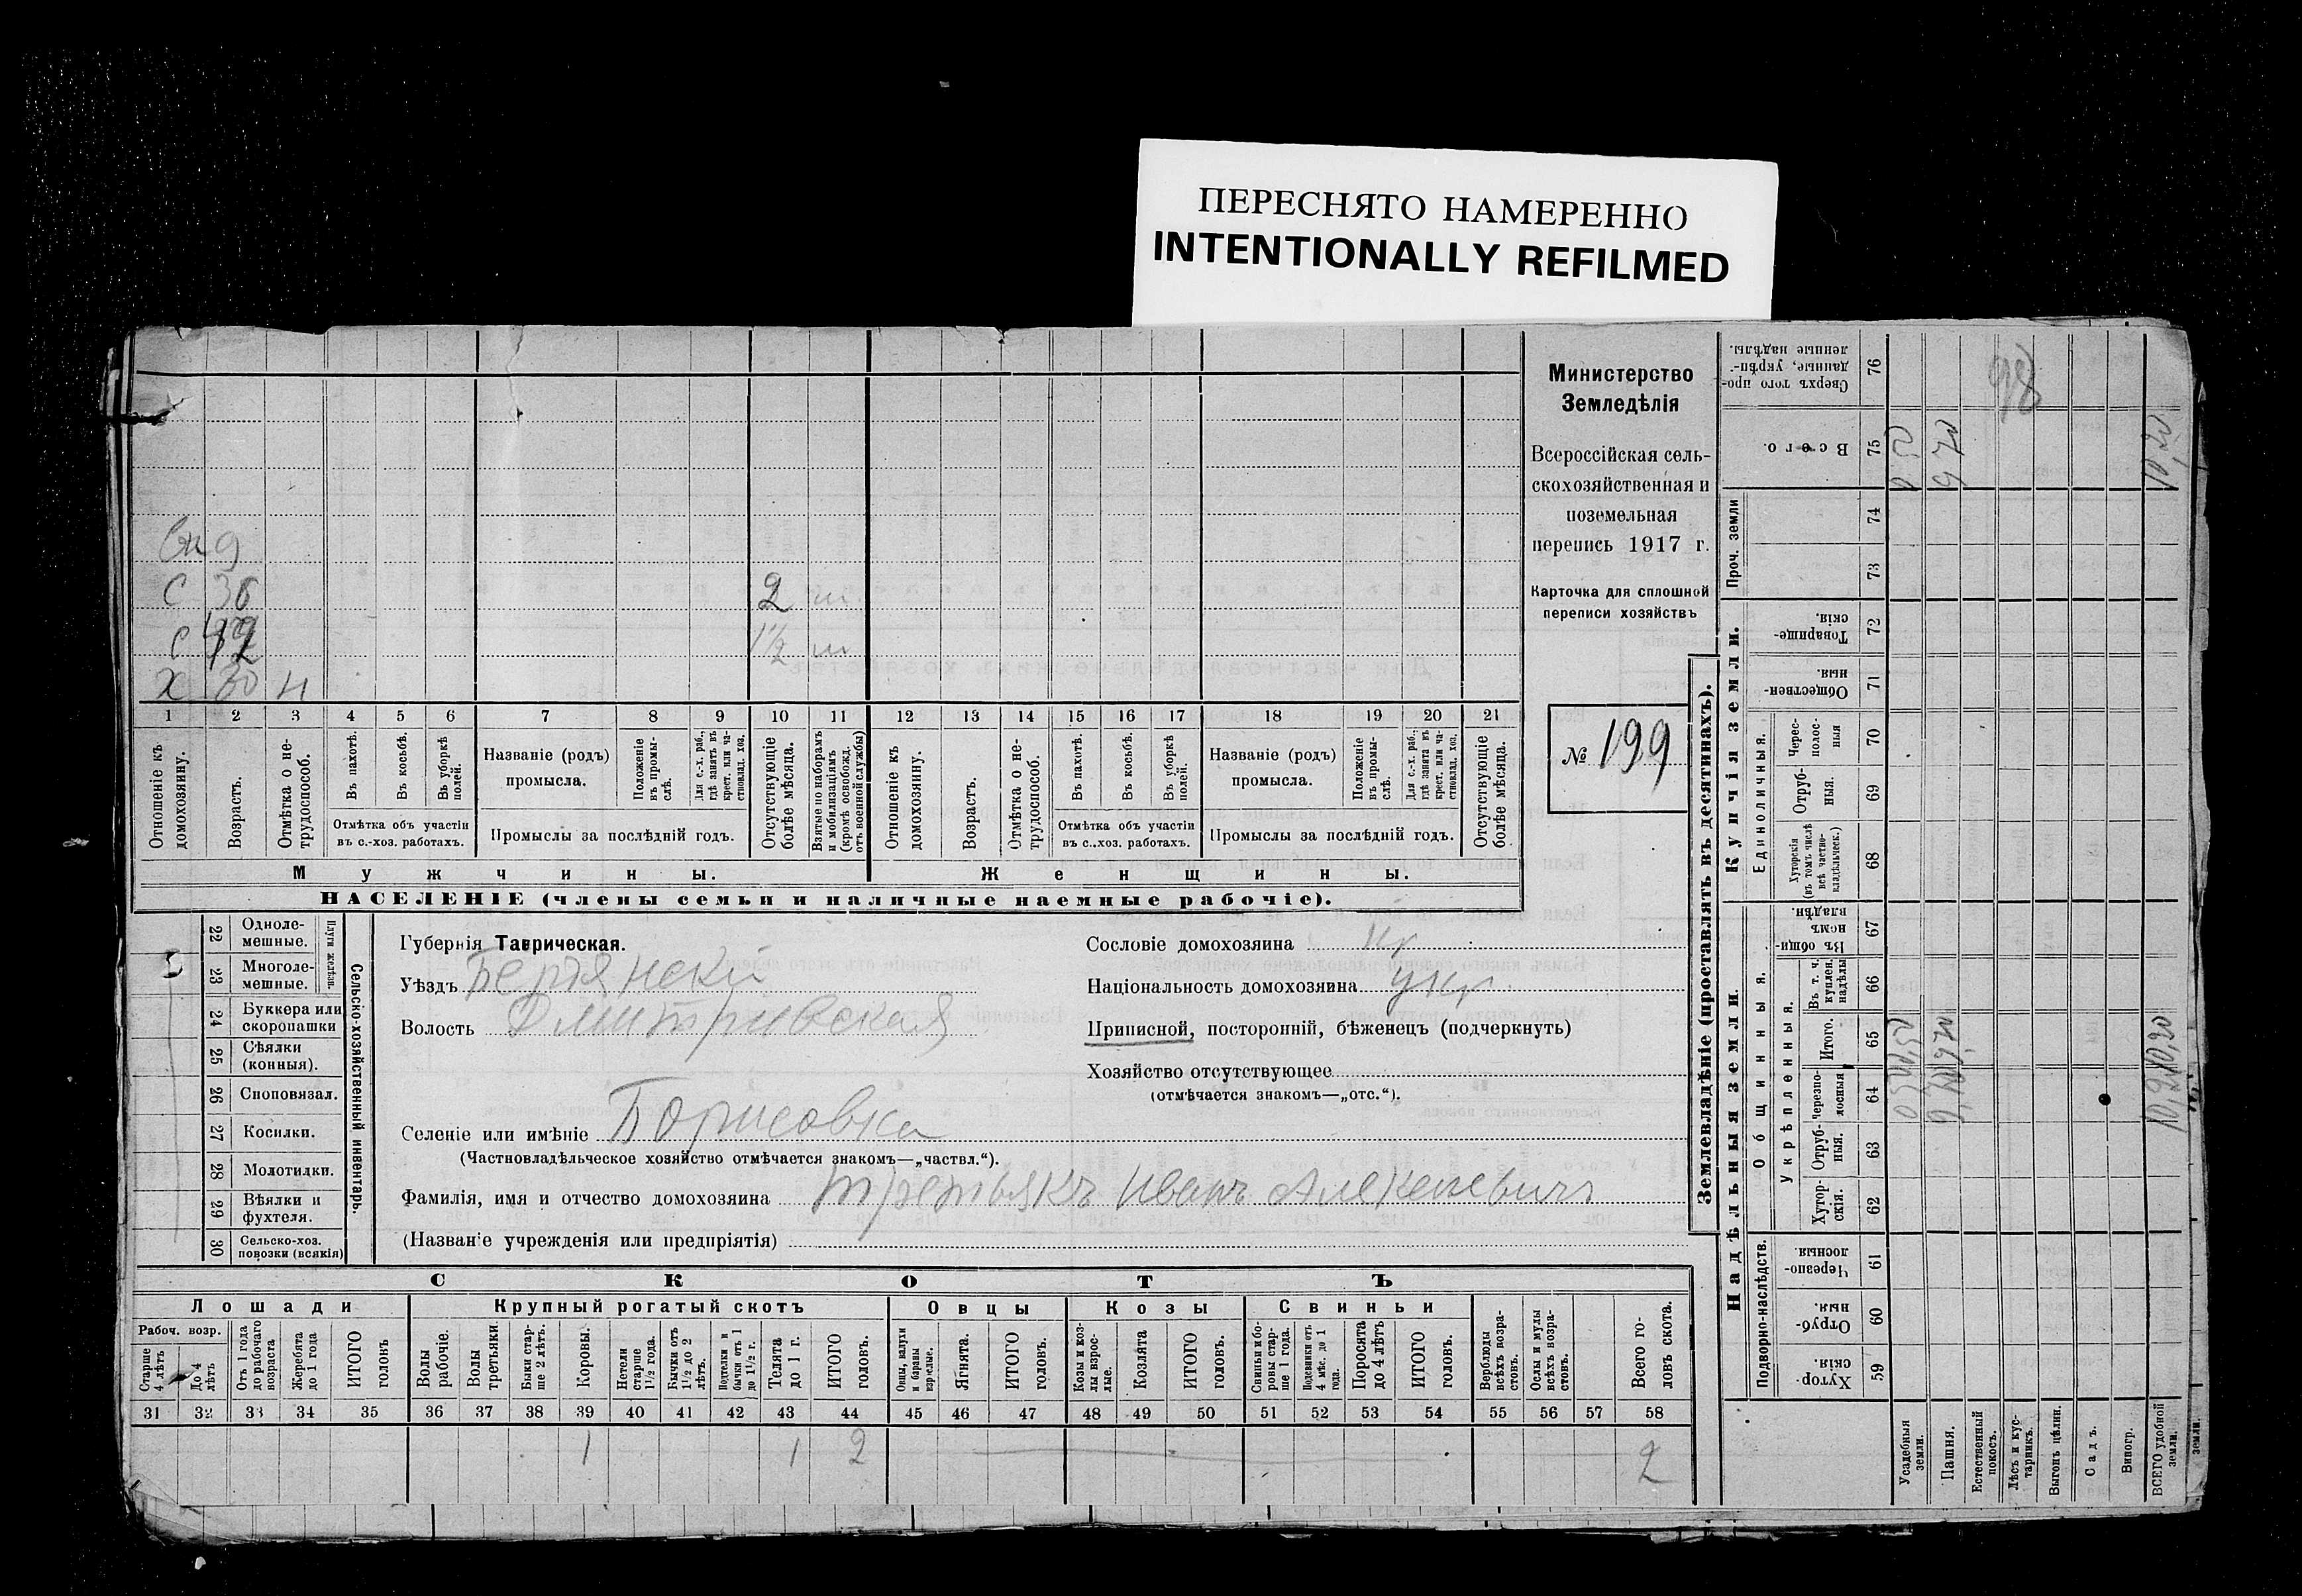 ПЕРЕСНЯТО НАМЕРЕННО
INTENTIONALLY REFILMED
Министерство
Земледѣлія
Всероссійская сель-
скохозяйственная и
поземельная
перепись 1917 г.
Карточка для сплошной
переписи хозяйствъ
№ 199
9
С 2 ш
С 1½ ш
Х 30 н
1 2 3 4 5 6 7 8 9 10 11 12 13 14 15 16 17 18 19 20 21
Отношеніе къ домохозяину.
Возрастъ.
Отмѣтка о не-трудоспособ.
Въ пахотѣ.
Въ косьбѣ.
Въ уборкѣ полей.
Отмѣтка объ участіи
въ с.-хоз. работахъ.
Названіе (родъ)
промысла.
Положеніе въ промы-слѣ.
Для с.-х. раб., гдѣ занятъ въ крест. или ча-стновлад. хоз.
Промыслы за послѣдній годъ.
Отсутствующіе болѣе мѣсяца.
Взятые по наборамъ и мобилизаціямъ (кромѣ освобожд. отъ военной службы)
Отношеніе къ домохозяину.
Возрастъ.
Отмѣтка о не-трудоспособ.
Въ пахотѣ.
Въ косьбѣ.
Въ уборкѣ полей.
Отмѣтка объ участіи
въ с.-хоз. работахъ.
Названіе (родъ)
промысла.
Положеніе въ промы-слѣ.
Для с.-х. раб., гдѣ занятъ въ крест. или ча-стновлад. хоз.
Промыслы за послѣдній годъ.
Отсутствующіе болѣе мѣсяца.
Мужчины.
Женщины.
НАСЕЛЕНІЕ (члены семьи и наличные наемные рабочіе).
22 Одноле-мешные.
23 Многоле-мешные.
Плуги желѣзн.
24 Буккера или скоропашки
25 Сѣялки (конныя).
26 Сноповязал.
27 Косилки.
28 Молотилки.
29 Вѣялки и фухтеля.
30 Сельско-хоз. повозки (всякія)
Сельско-хозяйственный инвентарь.
Губернія Таврическая.
Уѣздъ Бердянскій
Волость Дмитривская
Селеніе или имѣніе Борисовка
(Частновладѣльческое хозяйство отмѣчается знакомъ—„частвл.“).
Фамилія, имя и отчество домохозяина Третьякъ Иванъ Алексеевичъ
(Названіе учрежденія или предпріятія)
Сословіе домохозяина кр
Національность домохозяина укр.
Приписной, посторонній, бѣженецъ (подчеркнуть)
Хозяйство отсутствующее
(отмѣчается знакомъ—„отс.“).
СКОТЪ
Лошади
Крупный рогатый скотъ
Овцы
Козы
Свиньи
Рабоч. возр.
Старше 4 лѣтъ
До 4 лѣтъ
Отъ 1 года до рабочаго возраста
Жеребята до 1 года
ИТОГО головъ
Волы рабочіе.
Волы третьяки.
Быки стар-ше 2 лѣтъ.
Коровы.
Нетели старше 1½ года.
Бычки отъ 1½ до 2 лѣтъ.
Подтелки и бычки отъ 1 до 1½ г.
Телята до 1 г.
ИТОГО головъ.
Овцы, валухи и бараны взрослые.
Ягнята.
ИТОГО головъ.
Козы и коз-лы взрос-лые.
Козлята
ИТОГО головъ.
Свиньи и бо-ровы стар-ше 1 года.
Подсвинки отъ 4 мѣс. до 1 года.
Поросята до 4 лѣтъ
ИТОГО головъ.
Верблюды всѣхъ возра-стовъ.
Ослы и мулы всѣхъ возра-стовъ.
Всего го-ловъ скота.
31 32 33 34 35 36 37 38 39 40 41 42 43 44 45 46 47 48 49 50 51 52 53 54 55 56 57 58
1 1 2 2
Землевладѣніе (проставлять въ десятинахъ).
Купчія земли.
Надѣльныя земли.
Сверхъ того про-данные, укрѣп-ленные надѣлы. 76
Всего. 75
Проч. земли
74
73
Товарище-скія. 72
Обществен-ныя 71
Единоличныя.
Черес-полос-ныя 70
Отруб-ныя. 69
Хуторскія (въ томъ числѣ всѣ частно-владѣльческ.) 68
Общинныя.
Въ общи-номъ владѣн. 67
Укрѣпленныя.
Въ т. ч. куплен. надѣлы 66
Итого. 65
Черезпо-лосныя 64
Отруб-ныя. 63
Хутор-скія. 62
Подворно-наслѣдств.
Черезпо-лосныя. 61
Отруб-ныя. 60
Хутор-скія. 59
Усадебныя земли.
Пашня.
Естественный покосъ.
Лѣсъ и кус-тарникъ.
Выгонъ цѣлин.
Садъ.
Виногр.
ВСЕГО удобной земли.
земли.
98